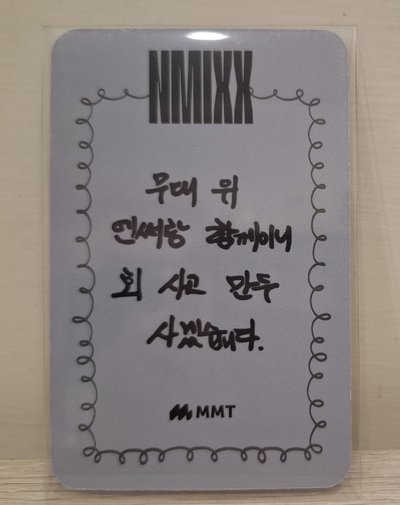 NMIXX
무대 위
엔써랑 함께이니
회 사고 만두
사겠습니다.
MMT